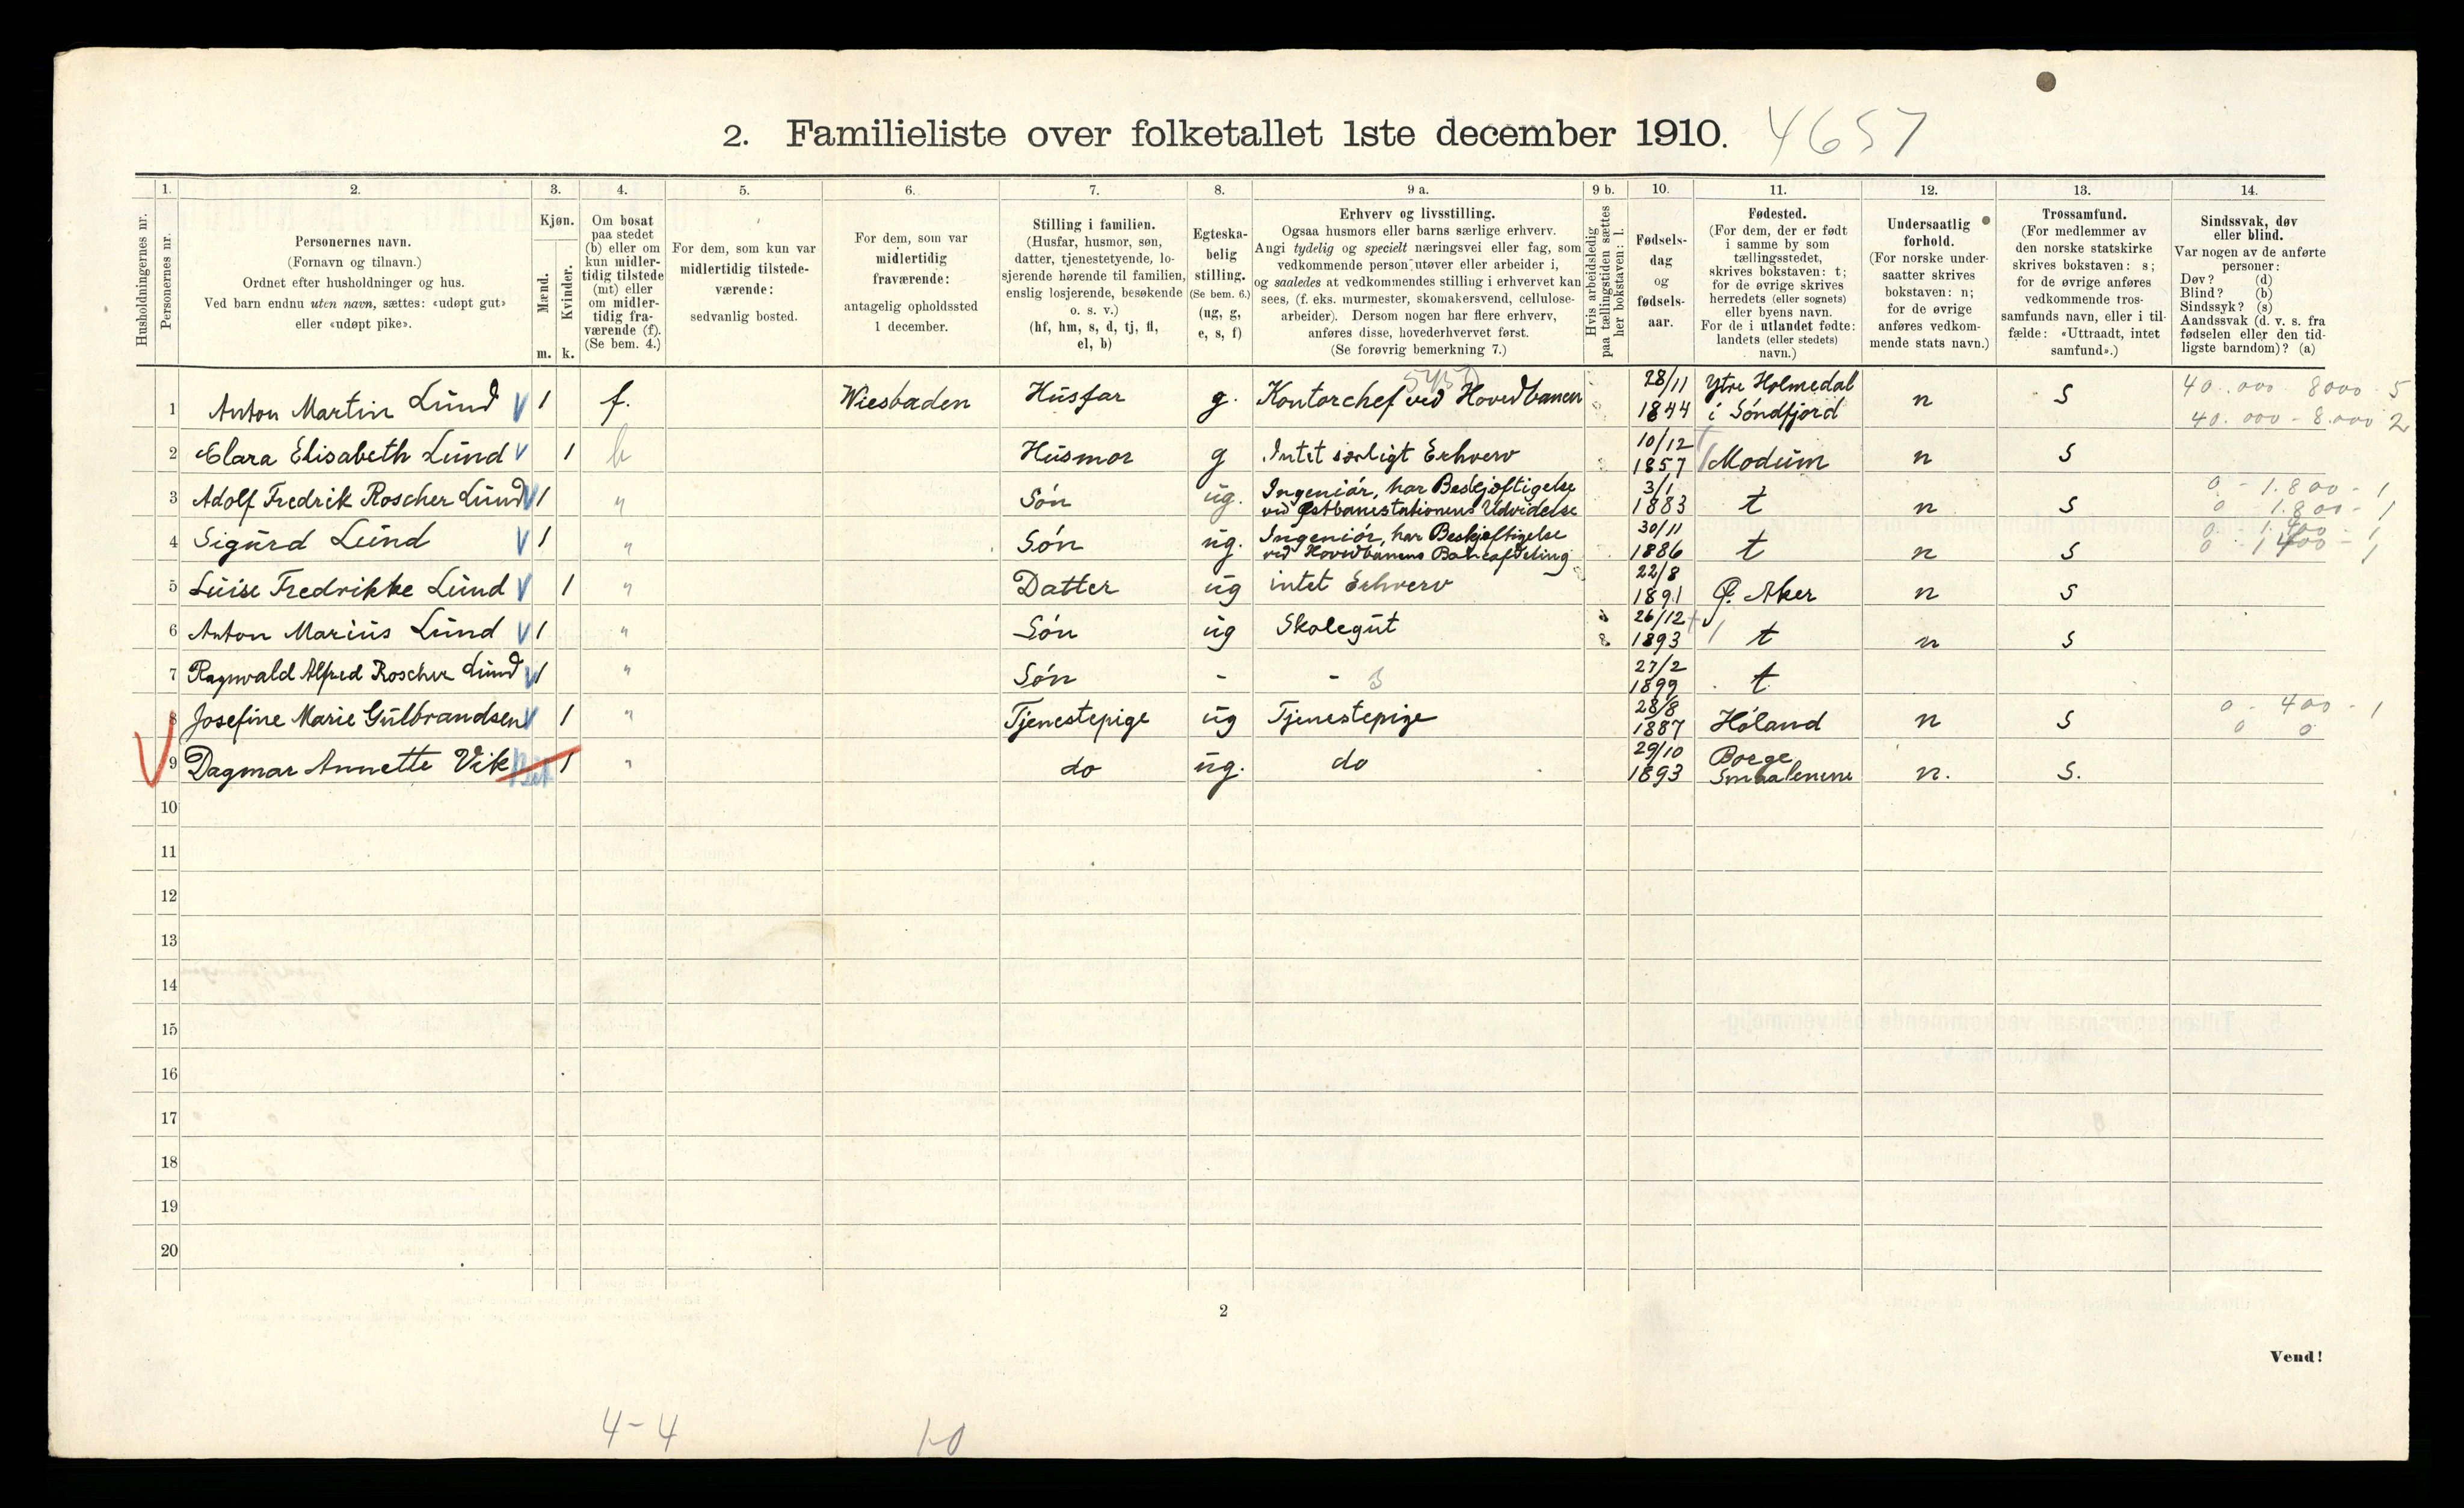 2. Familieliste over folketallet 1ste december 1910. 4657
1. 2. 3. 4. 5. 6. 7. 8. 9 a. 9 b. 10. 11. 12. 13. 14.
Husholdningernes nr.
Personernes nr.
Personernes navn.
(Fornavn og tilnavn.)
Ordnet efter husholdninger og hus.
Ved barn endnu uten navn, sættes: «udøpt gut»
eller «udøpt pike».
Kjøn.
Mænd.
Kvinder.
m. k.
Om bosat
paa stedet
(b) eller om
kun midler-
tidig tilstede
(mt) eller
om midler-
tidig fra-
værende (f).
(Se bem. 4.)
For dem, som kun var
midlertidig tilstede-
værende:
sedvanlig bosted.
For dem, som var
midlertidig
fraværende:
antagelig opholdssted
1 december.
Stilling i familien.
(Husfar, husmor, søn,
datter, tjenestetyende, lo-
sjerende hørende til familien,
enslig losjerende, besøkende
o. s. v.)
(hf, hm, s, d, tj, fl,
el, b)
Egteska-
belig
stilling.
(Se bem. 6.)
(ug, g,
e, s, f)
Erhverv og livsstilling.
Ogsaa husmors eller barns særlige erhverv.
Angi tydelig og specielt næringsvei eller fag, som
vedkommende person utøver eller arbeider i,
og saaledes at vedkommendes stilling i erhvervet kan
sees, (f. eks. murmester, skomakersvend, cellulose-
arbeider). Dersom nogen har flere erhverv,
anføres disse, hovederhvervet først.
(Se forøvrig bemerkning 7.)
Hvis arbeidsledig
paa tællingstiden sættes
her bokstaven: l.
Fødsels-
dag
og
fødsels-
aar.
Fødested.
(For dem, der er født
i samme by som
tællingsstedet,
skrives bokstaven: t;
for de øvrige skrives
herredets (eller sognets)
eller byens navn.
For de i utlandet fødte:
landets (eller stedets)
navn.)
Undersaatlig
forhold.
(For norske under-
saatter skrives
bokstaven: n;
for de øvrige
anføres vedkom-
mende stats navn.)
Trossamfund.
(For medlemmer av
den norske statskirke
skrives bokstaven: s;
for de øvrige anføres
vedkommende tros-
samfunds navn, eller i til-
fælde: «Uttraadt, intet
samfund».)
Sindssvak, døv
eller blind.
Var nogen av de anførte
personer:
Døv? (d)
Blind? (b)
Sindssyk? (s)
Aandssvak (d. v. s. fra
fødselen eller den tid-
ligste barndom)? (a)
1 Anton Martin Lund 1 f. Wiesbaden Husfar g. Kontorchef ved Hovedbanen 28/11 1844 Ytre Holmedal i Søndfjord n S 40.000 8000 5
40.000 - 8.000 2
2 Clara Elisabeth Lund 1 b Husmor g Intet særligt Erhverv 10/12 1857 Modum n S
3 Adolf Fredrik Roscher Lund 1 " Søn ug. Ingeniør, har Beskjæftigelse ved Østbanestationens Udvidelse 3/1 1883 t n S 0 - 1.800 - 1
0 - 1.800 - 1
4 Sigurd Lund 1 " Søn ug. Ingeniør, har Beskjæftigelse ved Hovedbanens Baneafdeling 30/11 1886 t n S 0 - 1.400 - 1
0 - 1400 - 1
5 Luise Fredrikke Lund 1 " Datter ug intet Erhverv 22/8 1891 Ø. Aker n S
6 Anton Marius Lund 1 " Søn ug Skolegut 26/12 1893 t n S
7 Ragnvald Alfred Roscher Lund 1 " Søn - - 3 27/2 1899 t
8 Josefine Marie Gulbrandsen 1 " Tjenestepige ug Tjenestepige 28/8 1887 Høland n S 0 - 400 - 1
0 0
9 Dagmar Annette Vik 1 " do ug. do 29/10 1893 Borge Smaalenene n. S.
10
11
12
13
14
15
16
17
18
19
20
2
Vend!
4-4 1-0